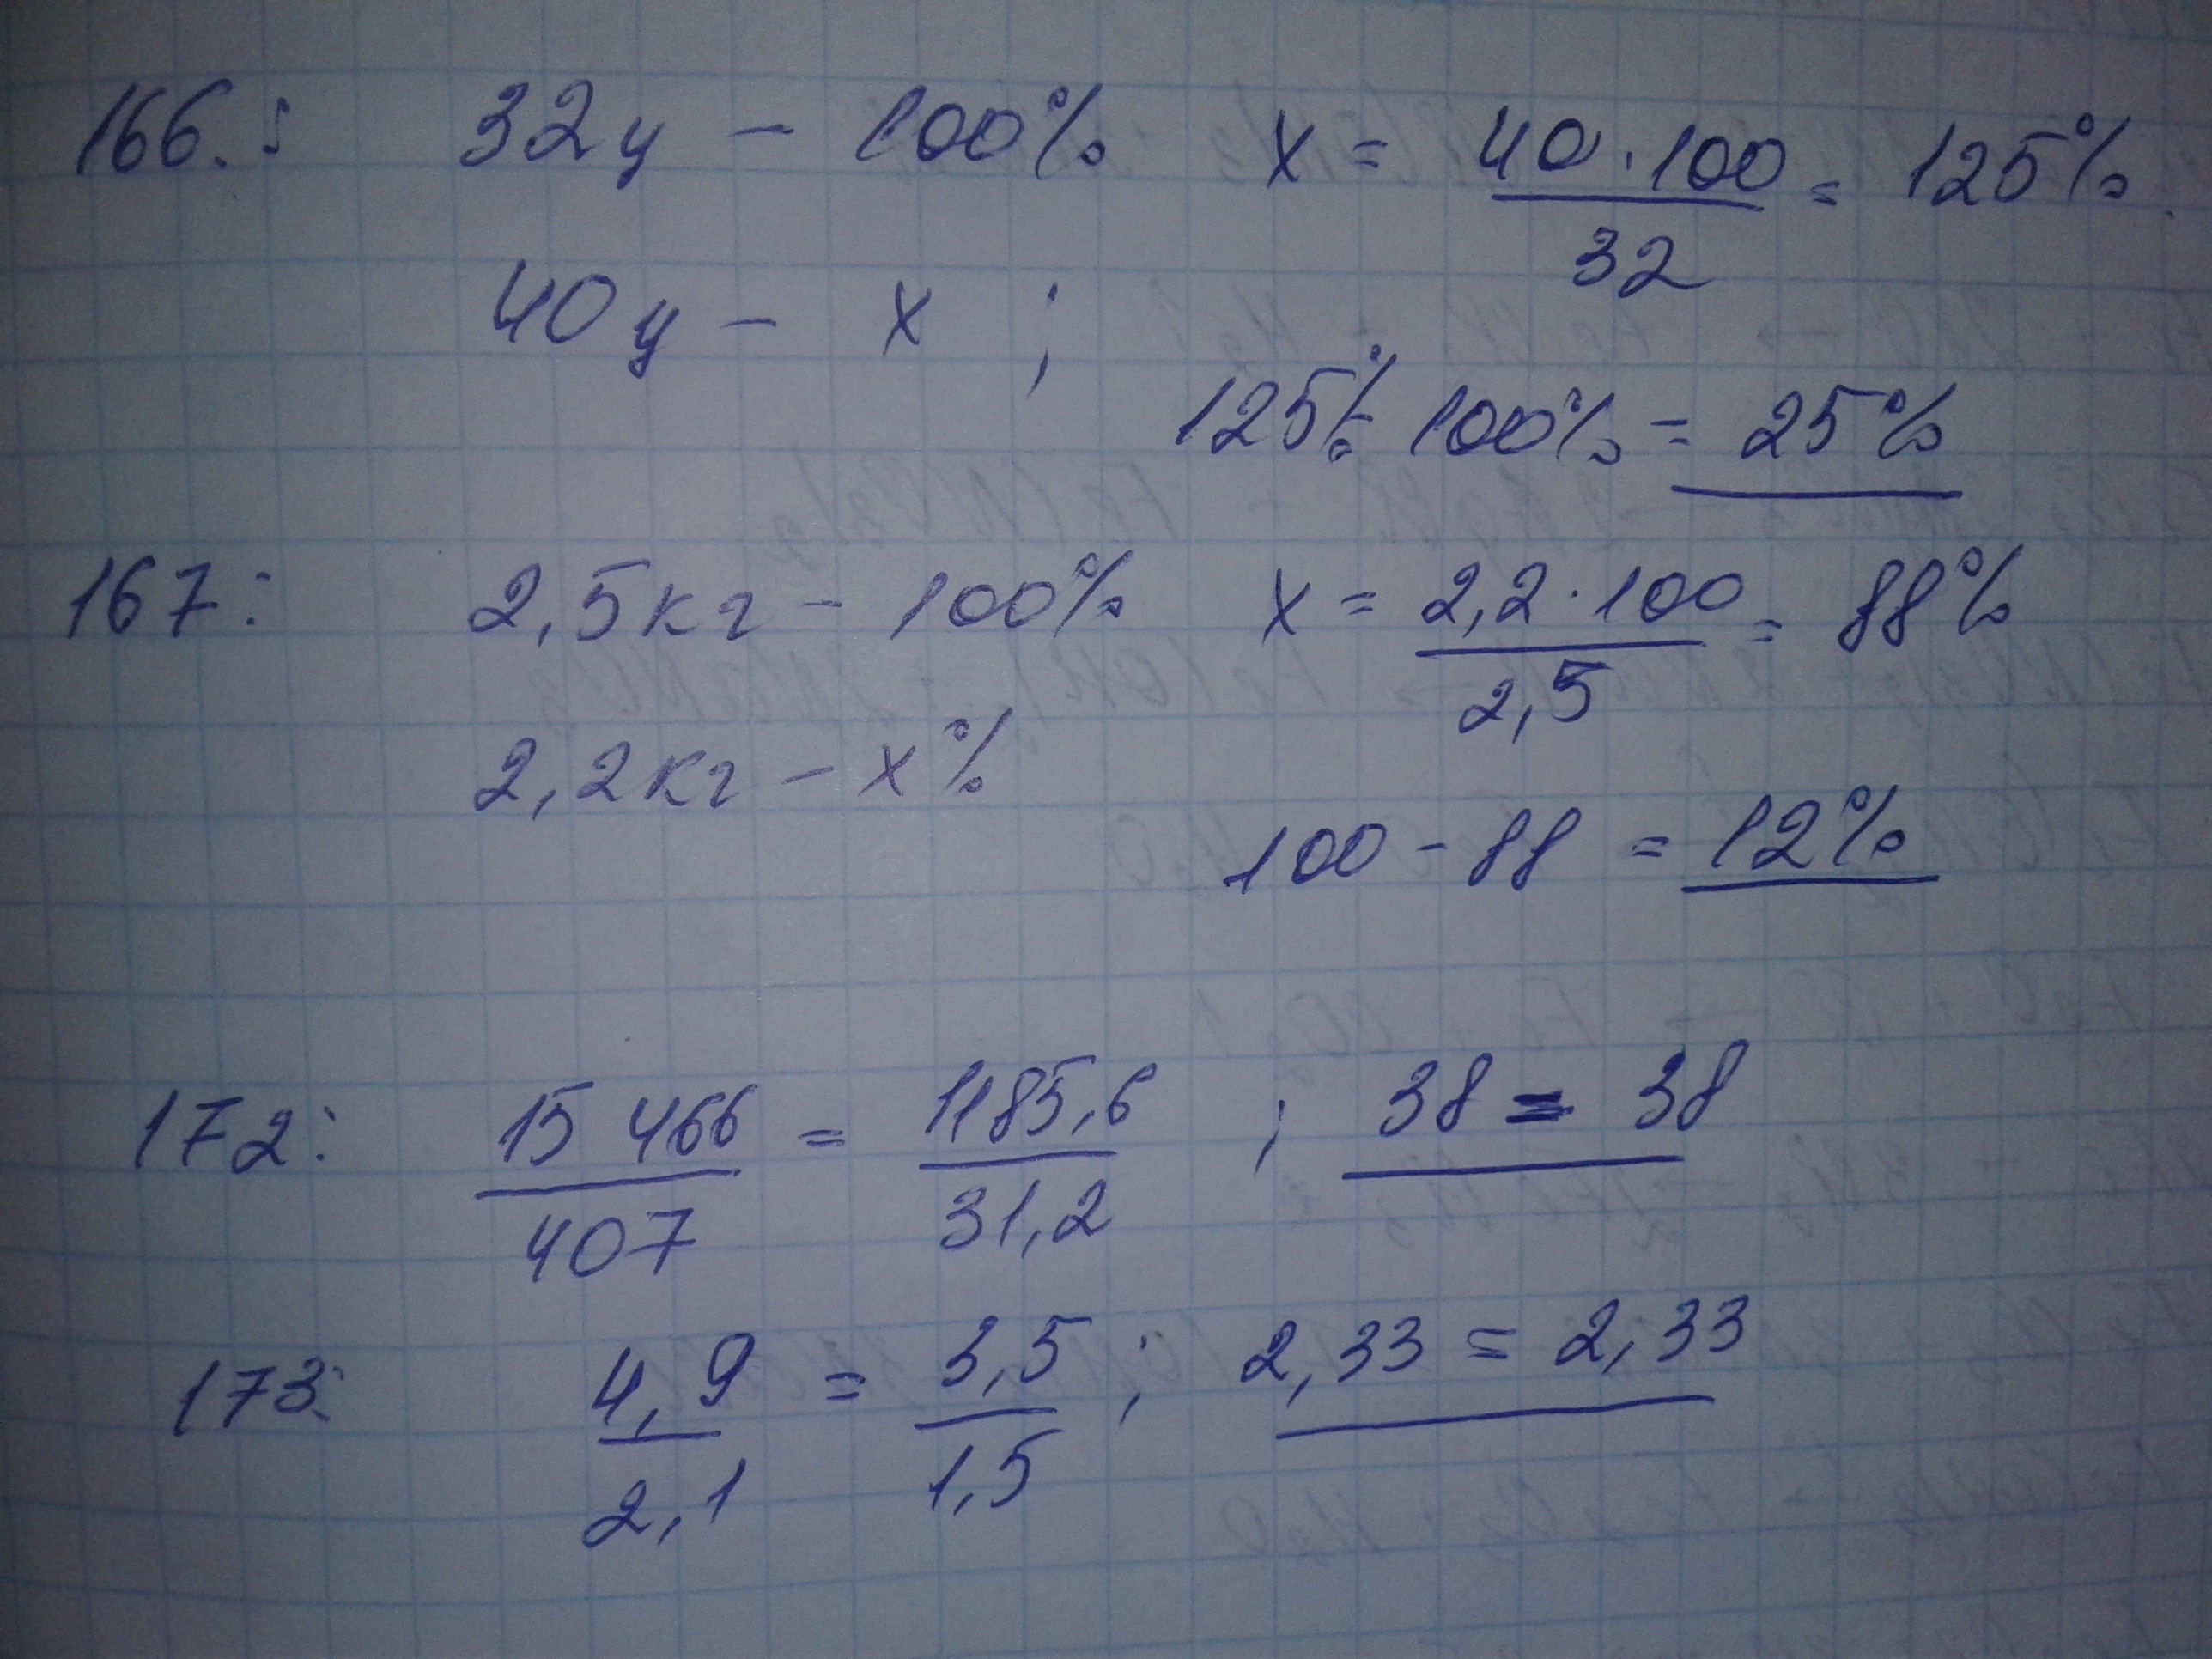 166.: 32ц - 100% x = 40·100/32 = 125%.
40ц - x ;
125% - 100% = 25%
167: 2,5кг - 100% x = 2,2·100/2,5 = 88%
2,2кг - x%
100 - 88 = 12%
172: 15 466/407 = 1185,6/31,2 ; 38 = 38
173: 4,9/2,1 = 3,5/1,5 ; 2,33 = 2,33